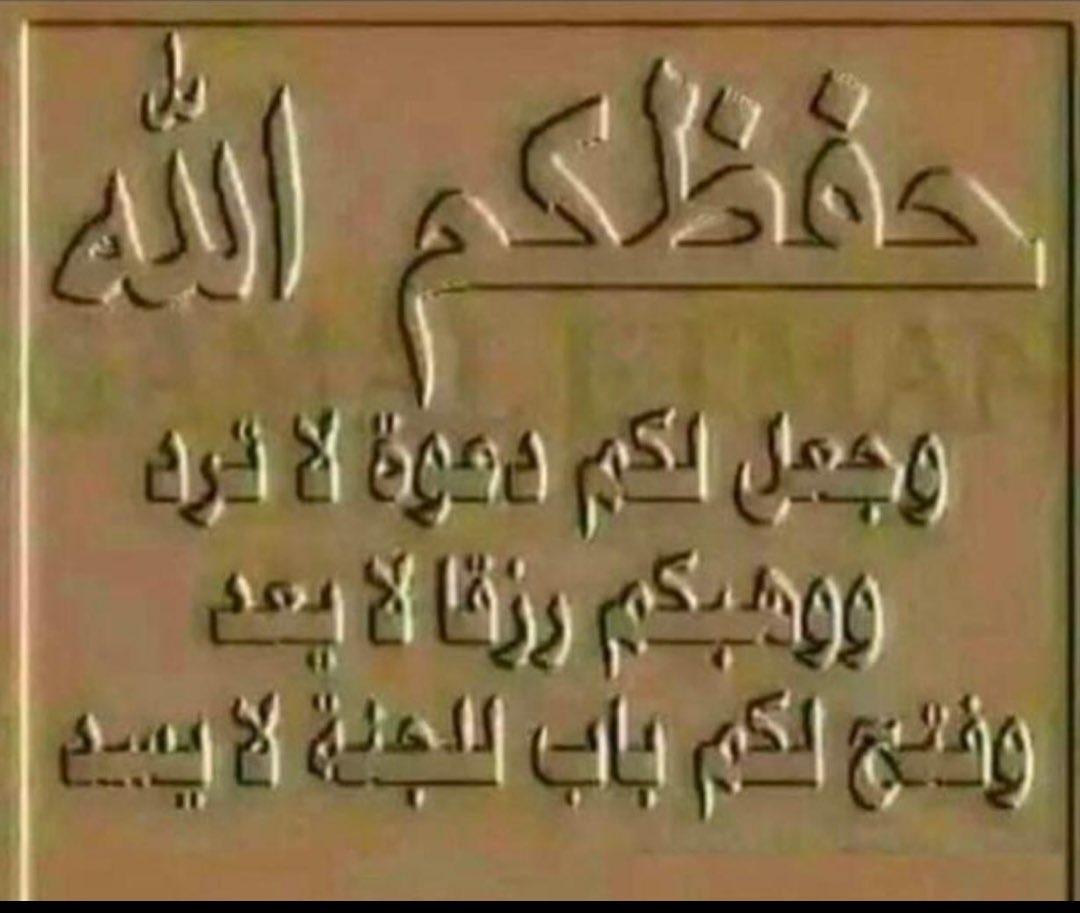 حفظكم الله
وجعل لكم دعوة لا ترد
ووهبكم رزقا لا يعد
وفتح لكم باب للجنة لا يسد